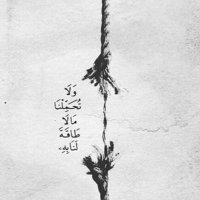 وَلَا
تُحَمِّلْنَا
مَا لَا
طَاقَةَ
لَنَا بِهِ